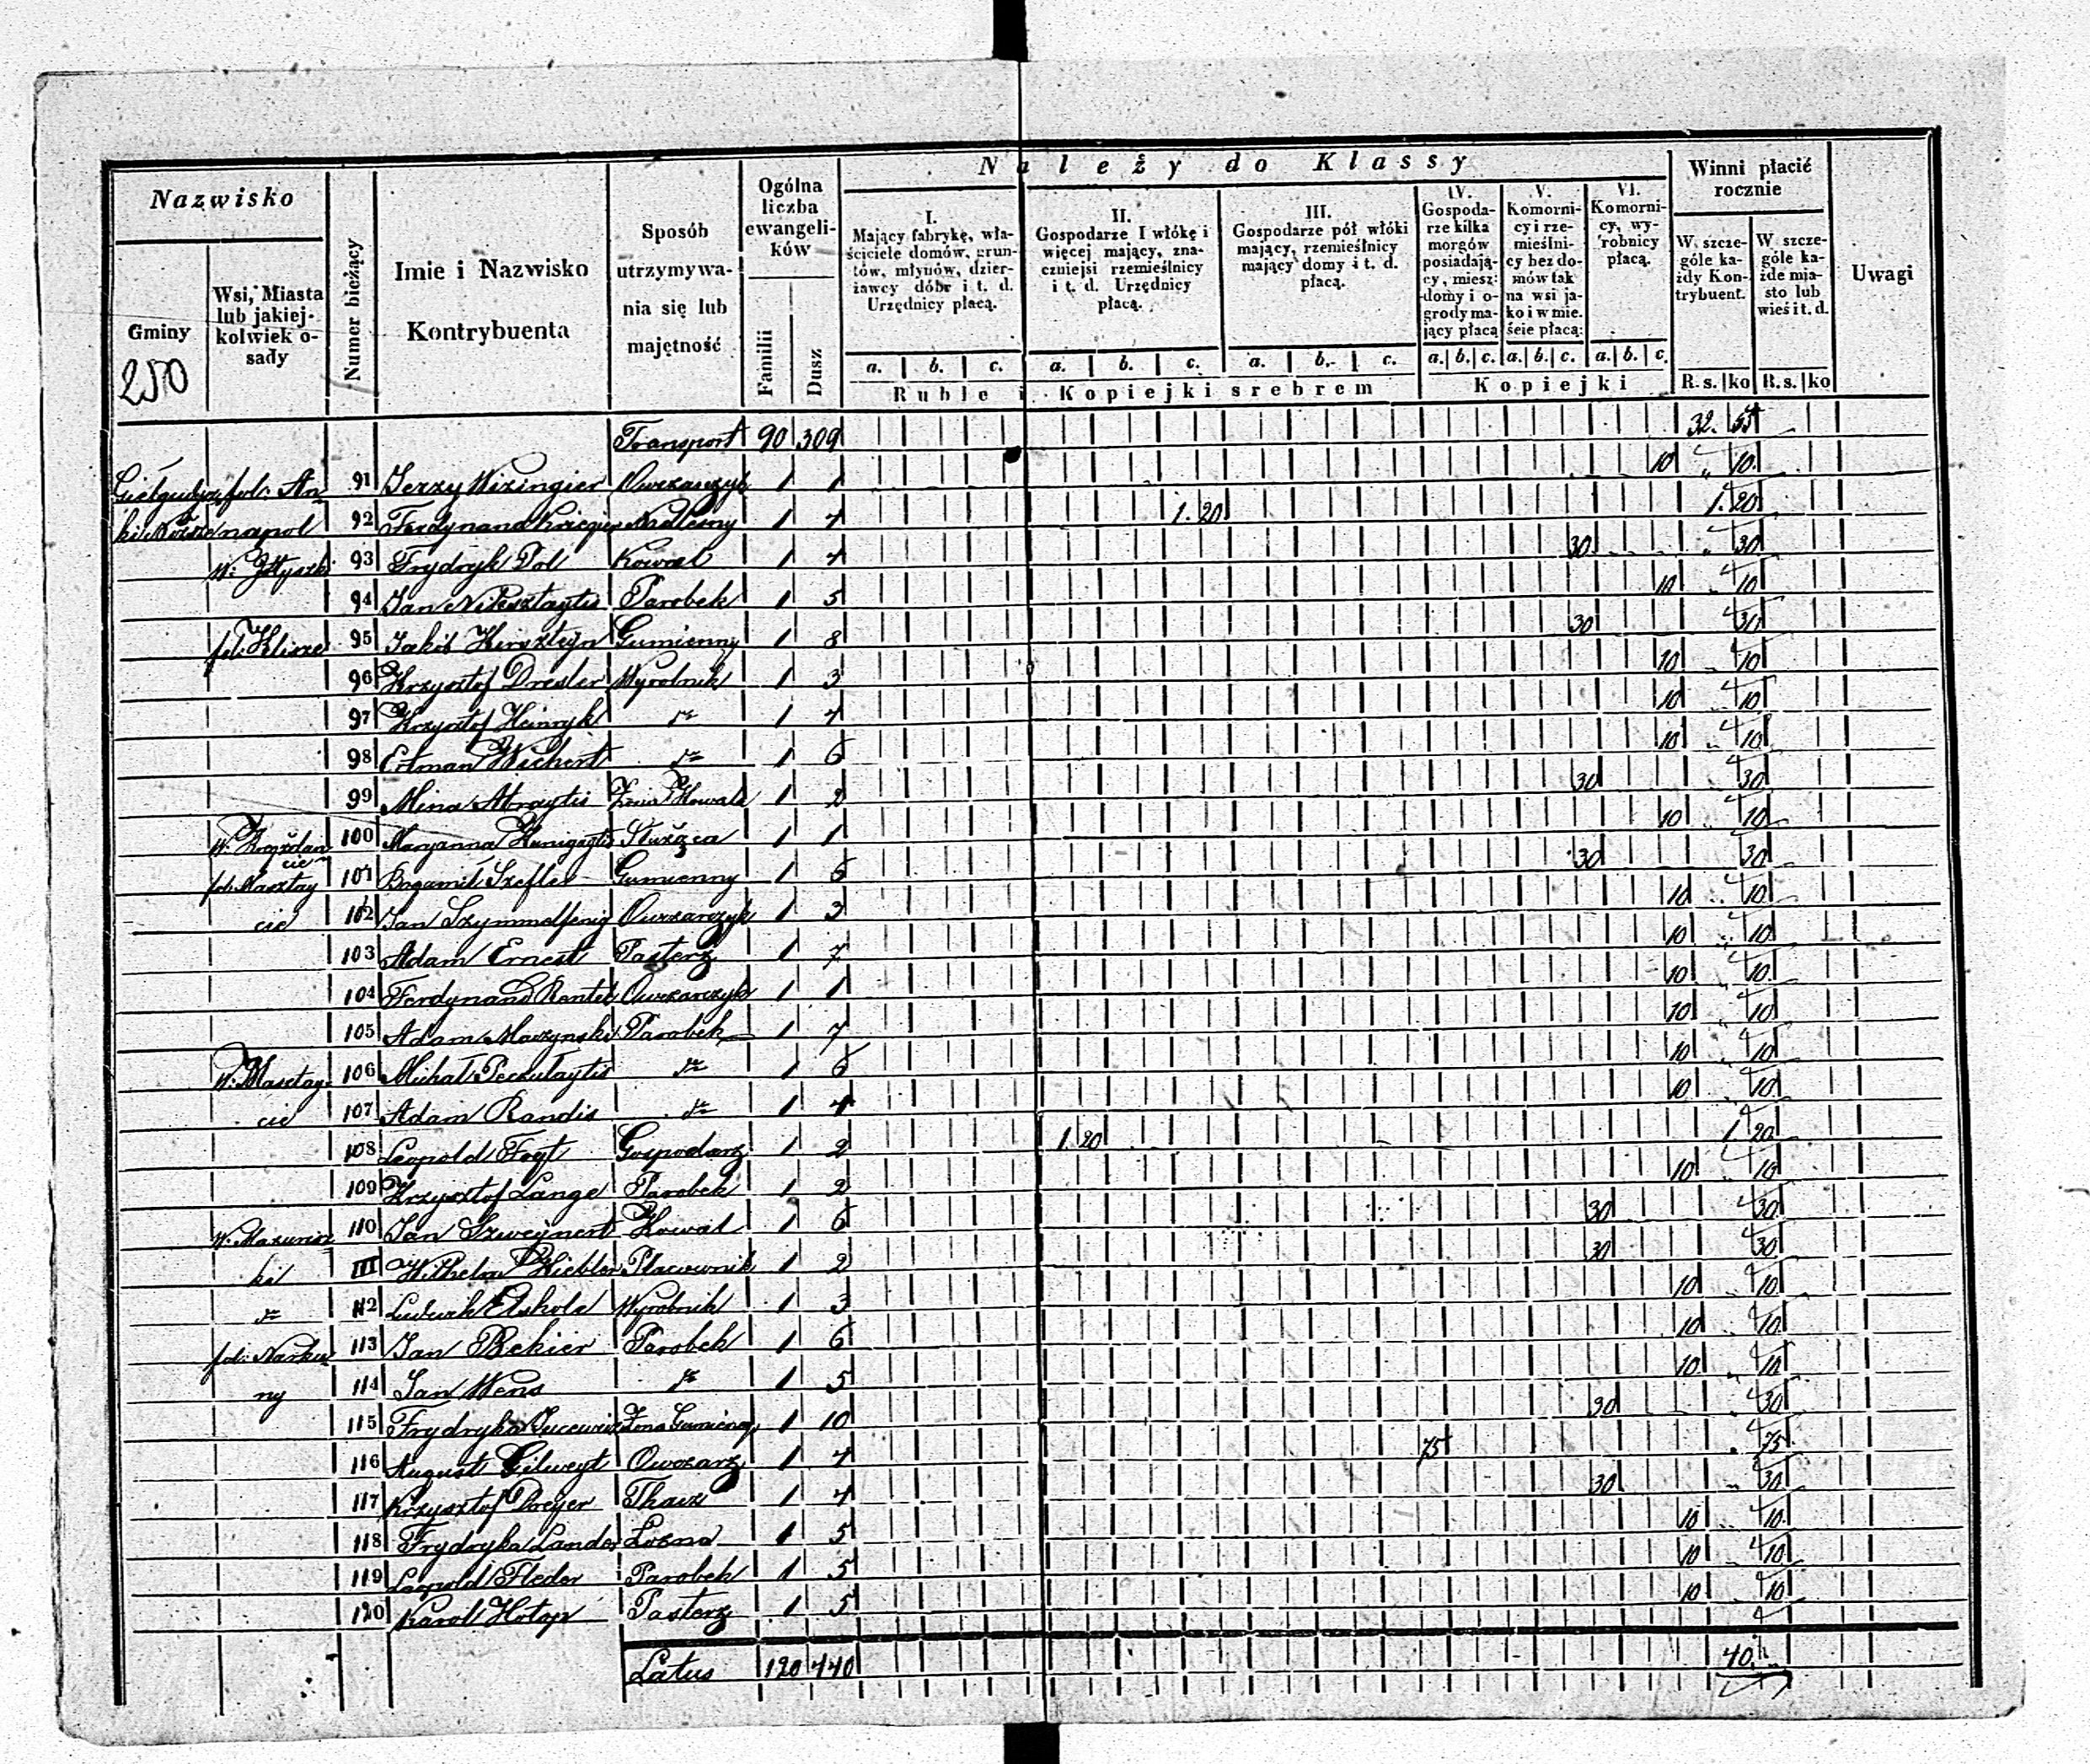 Nazwisko
Gminy
250
Wsi, Miasta
lub jakiej-
kolwiek o-
sady
Numer bieżący
Imie i Nazwisko
Kontrybuenta
Sposób
utrzymywa-
nia się lub
majętność
Ogólna
liczba
ewangeli-
ków
Familii
Dusz
Należy do Klassy
I.
Mający fabrykę, wła-
ściciele domów, grun-
tów, młynów, dzier-
żawcy dóbr i t. d.
Urzędnicy płacą.
II.
Gospodarze I włókę i
więcej mający, zna-
czniejsi rzemieślnicy
i t. d. Urzędnicy
płacą.
III.
Gospodarze pół włóki
mający, rzemieślnicy
mający domy i t. d.
płacą.
IV.
Gospoda-
rze kilka
morgów
posiadają-
cy, miesz:
domy i o-
grody ma-
jący płacą
V.
Komorni-
cy i rze-
mieślni-
cy bez do-
mów tak
na wsi ja-
ko i w mie.
ście płacą:
VI.
Komorni-
cy, wy-
robnicy
płacą.
a. b. c. a. b. c. a. b. c. a. b. c. a. b. c. a. b. c.
Ruble i Kopiejki srebrem
Kopiejki
Winni płacić
rocznie
W szcze-
góle ka-
żdy Kon-
trybuent.
W szcze-
góle ka-
żde mia-
sto lub
wieś i t. d.
R. s. ko R. s. ko
Uwagi
Transport 90 309 32. 55
fol: An 91 Jerzy Wizingier Owczarczyk 1 1 10 " 10.
napol 92 Ferdynand Nadleśny 1 4 1. 20 1. 20
W: 93 Frydryk Dol Kowal 1 4 30 " 30
94 Jan Parobek 1 5 10 10
fol: 95 Jakób Gumienny 1 8 30 30
96 Krzysztof Dresler Wyrobnik 1 3 10 10
97 Krzysztof Heinryk dto 1 4 10 10
98 Erman Wichert dto 1 6 10 10
99 Mina Abraytis Żona Kowala 1 2 30 30
W. 100 Maryanna Służąca 1 1 10 10
cie
fol: Masztay 101 Bogumił Szefler Gumienny 1 5 30 30
cie 102 Jan Szymmelfenig Owczarczyk 1 3 10 10
103 Adam Ernest Pasterz 1 7 10 10
104 Ferdynand Rentel Owczarczyk 1 1 10 10
105 Adam Parobek 1 7 10 10
W: Masztay 106 Michał dto 1 6 10 10
cie 107 Adam Randis dto 1 4 10 10
108 Leopold Fogt Gospodarz 1 2 1. 20 1 20
109 Krzysztof Lange Parobek 1 2 10 10
W. 110 Jan Szwejnert Kowal 1 6 30 30
ki 111 Wilhelm 1 2 30 30
dto 112 Ludwik Wyrobnik 1 3 10 10
fol: Narku 113 Jan Bekier Parobek 1 6 10 10
ny 114 Jan Wens dto 1 5 10 10
115 Frydryka Żona 1 10 30 30
116 August Gilweyt Owczarz 1 4 75 75
117 Krzysztof Dreyer Tkacz 1 4 30 30
118 Frydryka Lander Loźna 1 5 10 10
119 Leopold Fleder Parobek 1 5 10 10
120 Karol Hotop Pasterz 1 5 10 10
Latus 120 440 40.